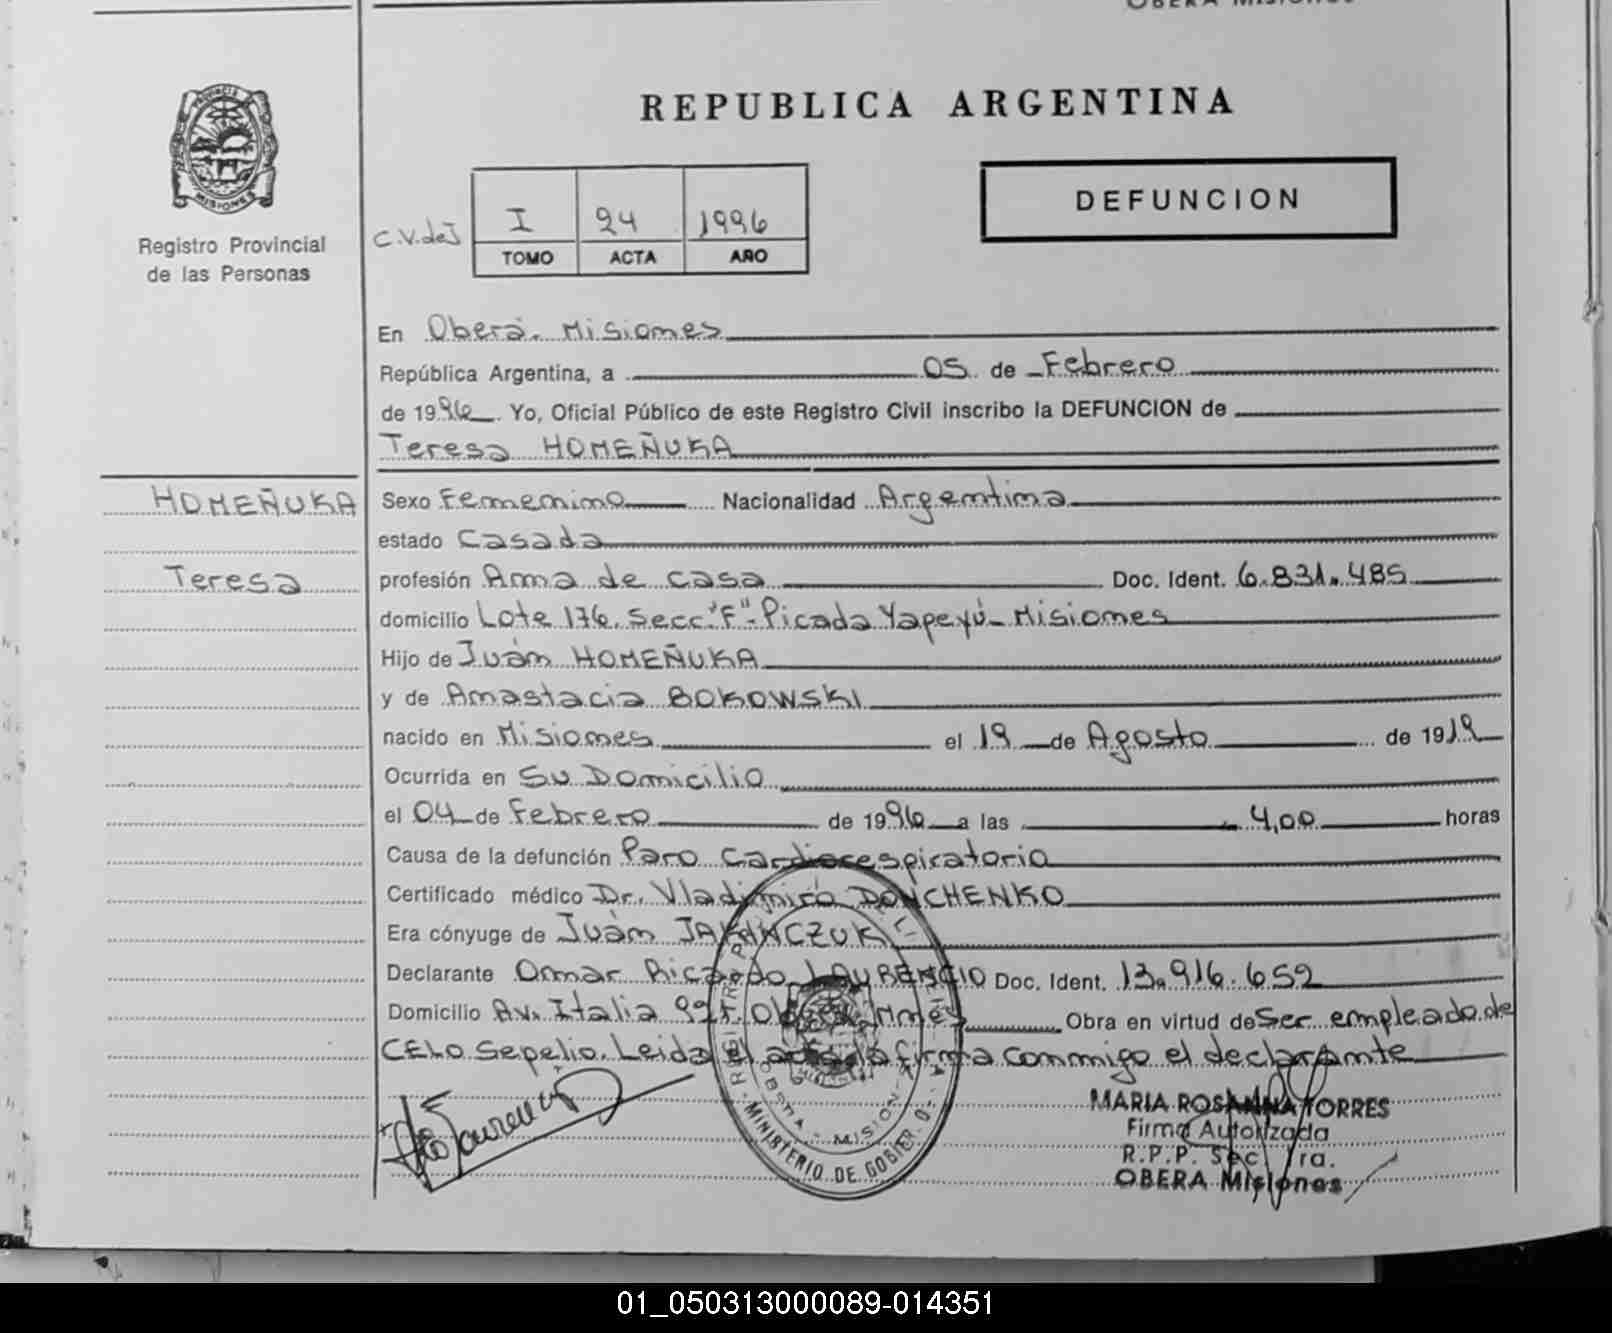 REPUBLICA ARGENTINA
PROVINCIA DE
MISIONES
Registro Provincial
de las Personas
DEFUNCION
C.V.deJ
I 24 1996
TOMO ACTA AÑO
En Oberá. Misiones
República Argentina, a 05 de Febrero
de 1996. Yo, Oficial Público de este Registro Civil inscribo la DEFUNCION de
Teresa HOMEÑUKA
HOMEÑUKA
Teresa
Sexo Femenino Nacionalidad Argentina
estado Casada
profesión Ama de casa Doc. Ident. 6.831.485
domicilio Lote 176. Secc."F". Picada Yapeyú- Misiones
Hijo de Juán HOMEÑUKA
y de Anastacia BOKOWSKI
nacido en Misiones el 19 de Agosto de 1919
Ocurrida en Su Domicilio
el 04 de Febrero de 1996 a las 4,00 horas
Causa de la defunción Paro Cardiorespiratorio
Certificado médico Dr. Vladimiro DONCHENKO
Era cónyuge de Juán
Declarante Omar Ricardo LAURENCIO Doc. Ident. 13.916.652
Domicilio Av. Italia Obra en virtud de Ser empleado de
CELO Sepelio. Leida el acta la firma conmigo el declarante
MINISTERIO DE GOBIERNO
MISIONES
MARIA ROSANNA TORRES
Firma Autorizada
R.P.P. Sec. 1ra.
OBERA Misiones
01_050313000089-014351